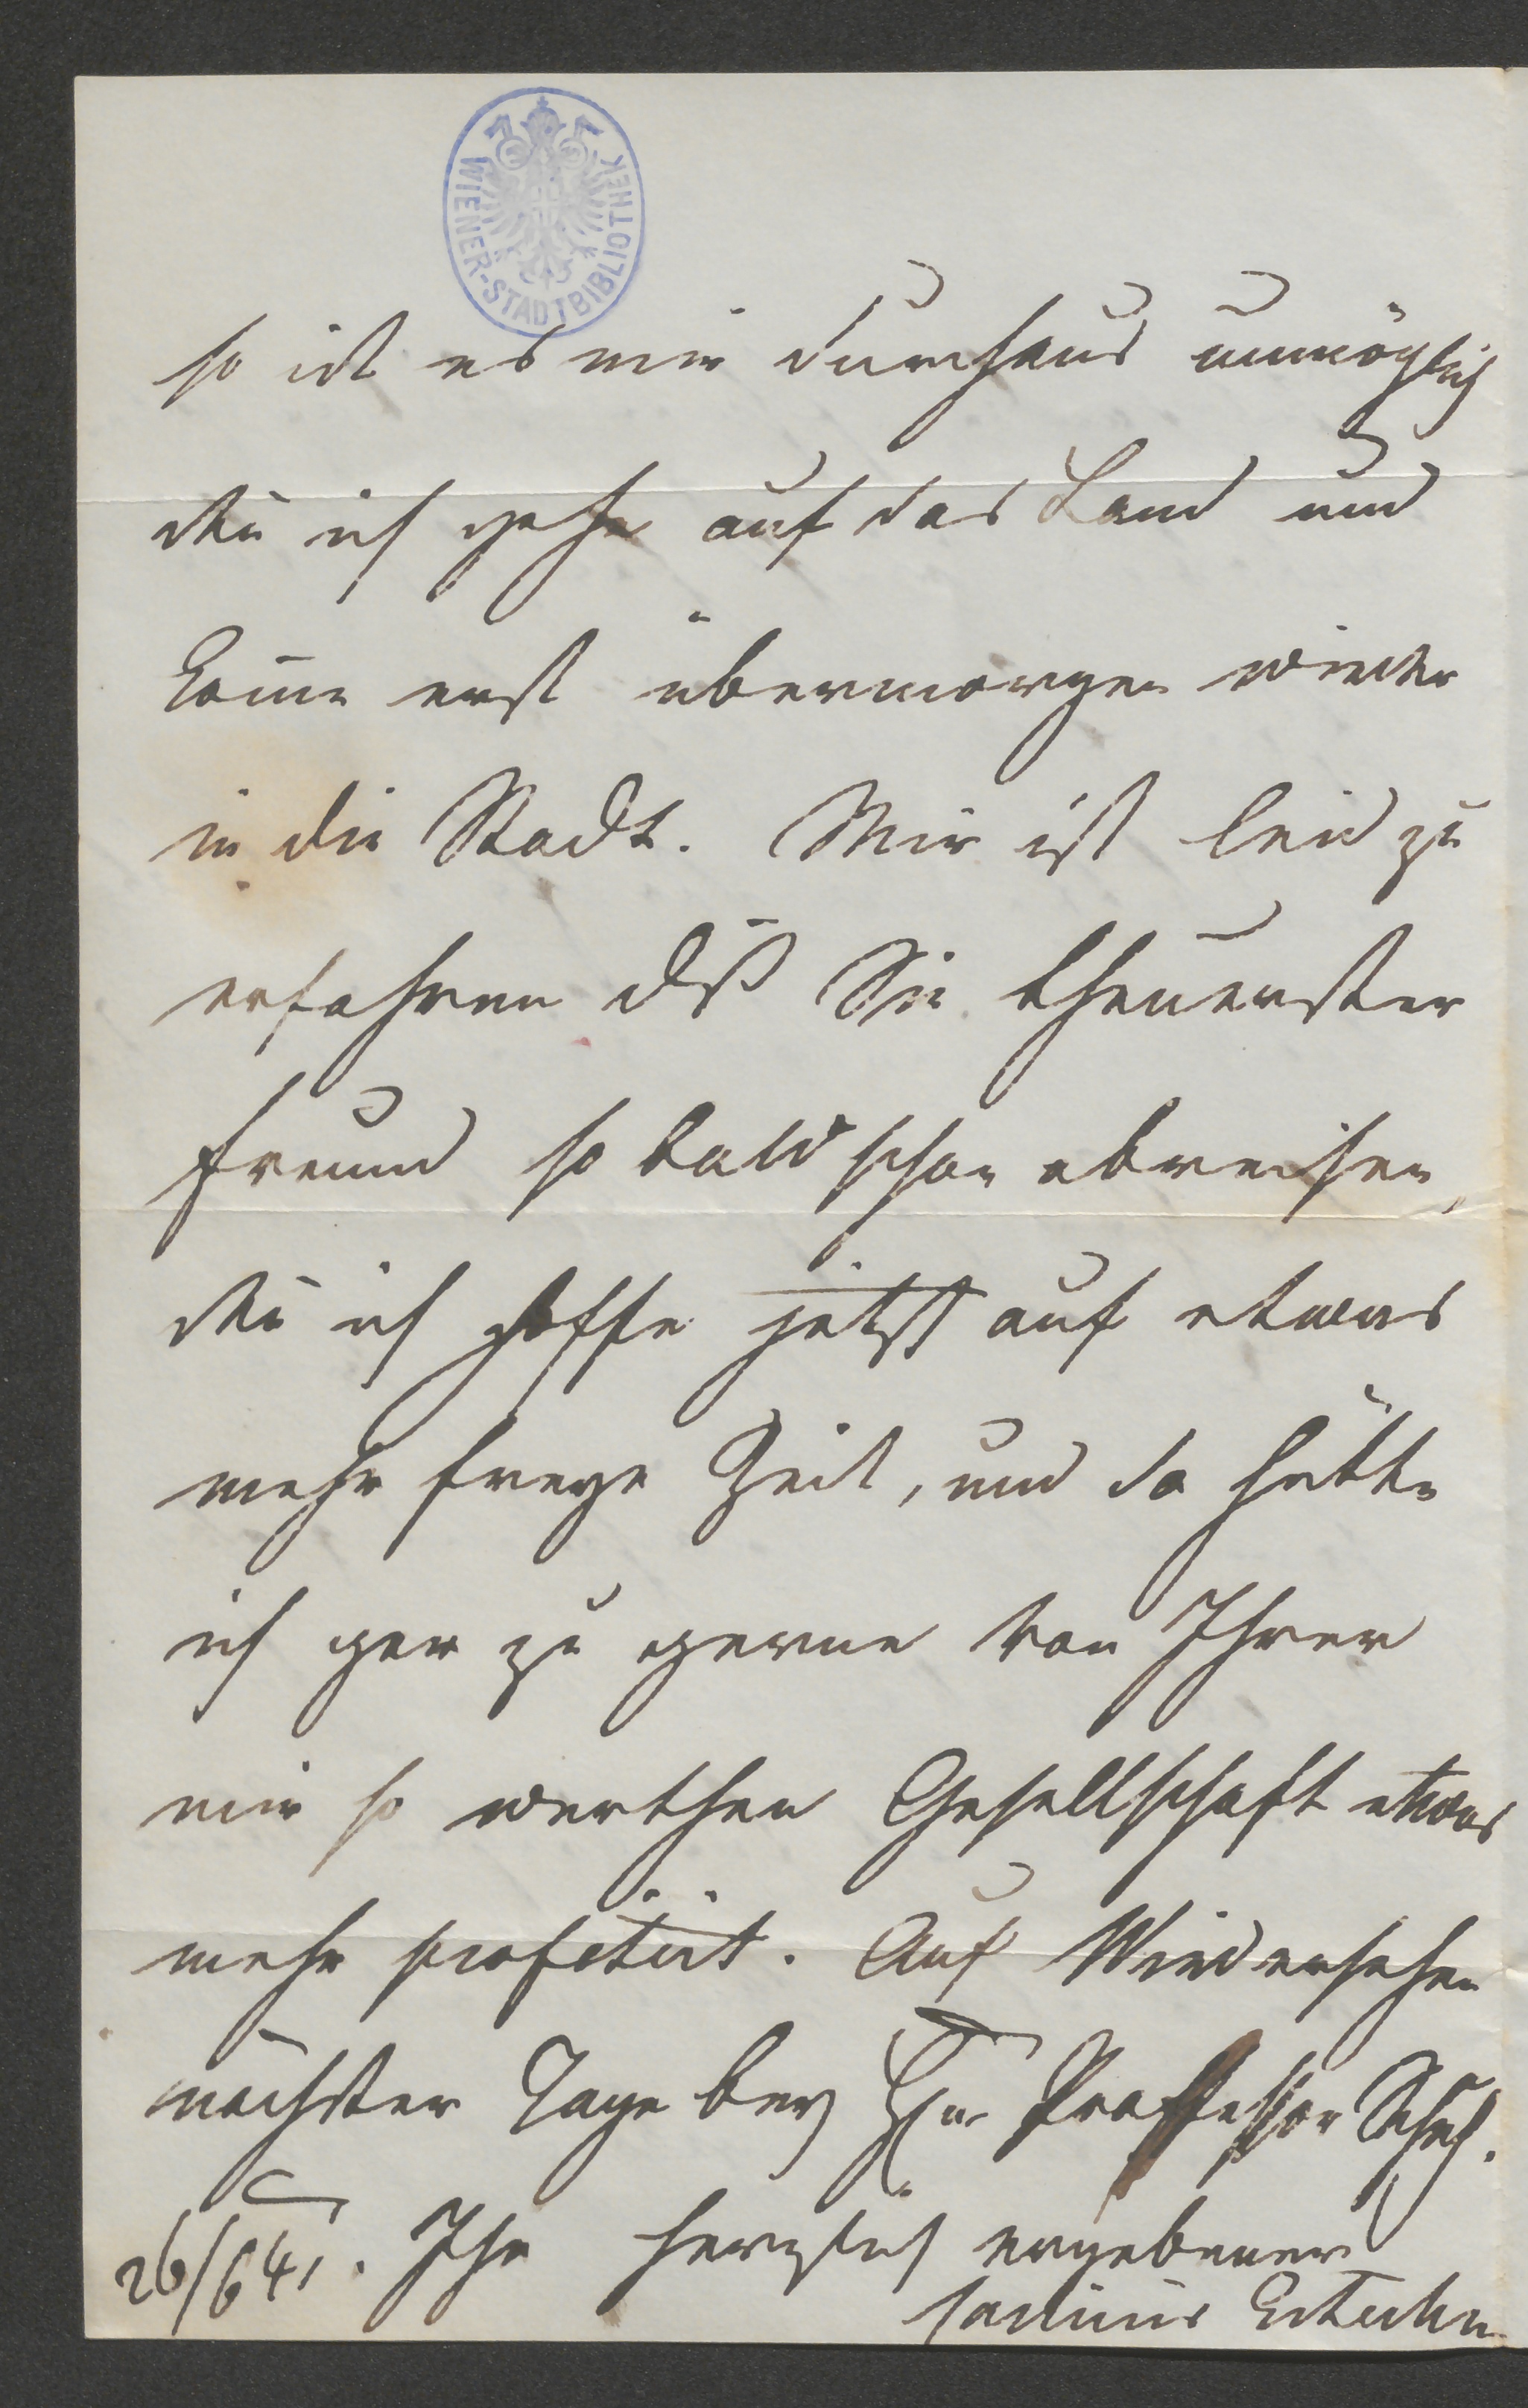 WIENER-STADTBIBLIOTHEK
so ist es mir durchaus unmöglich
den ich gehe auf das Land und
kom̅e erst übermorgen wieder
in die Stadt. Mir ist leid zu
erfahren dß Sie theuerster
Freund so bald schon abreisen,
den ich hoffe jetzt auf etwas
mehr freye Zeit, und da hätte
ich gar zu gerne von Ihrer
mir so werthen Gesellschaft etwas
mehr profitirt. Auf Wiedersehen
nächster Tage bey Hrn Professor
26/6 41. Ihr herzlich ergebener